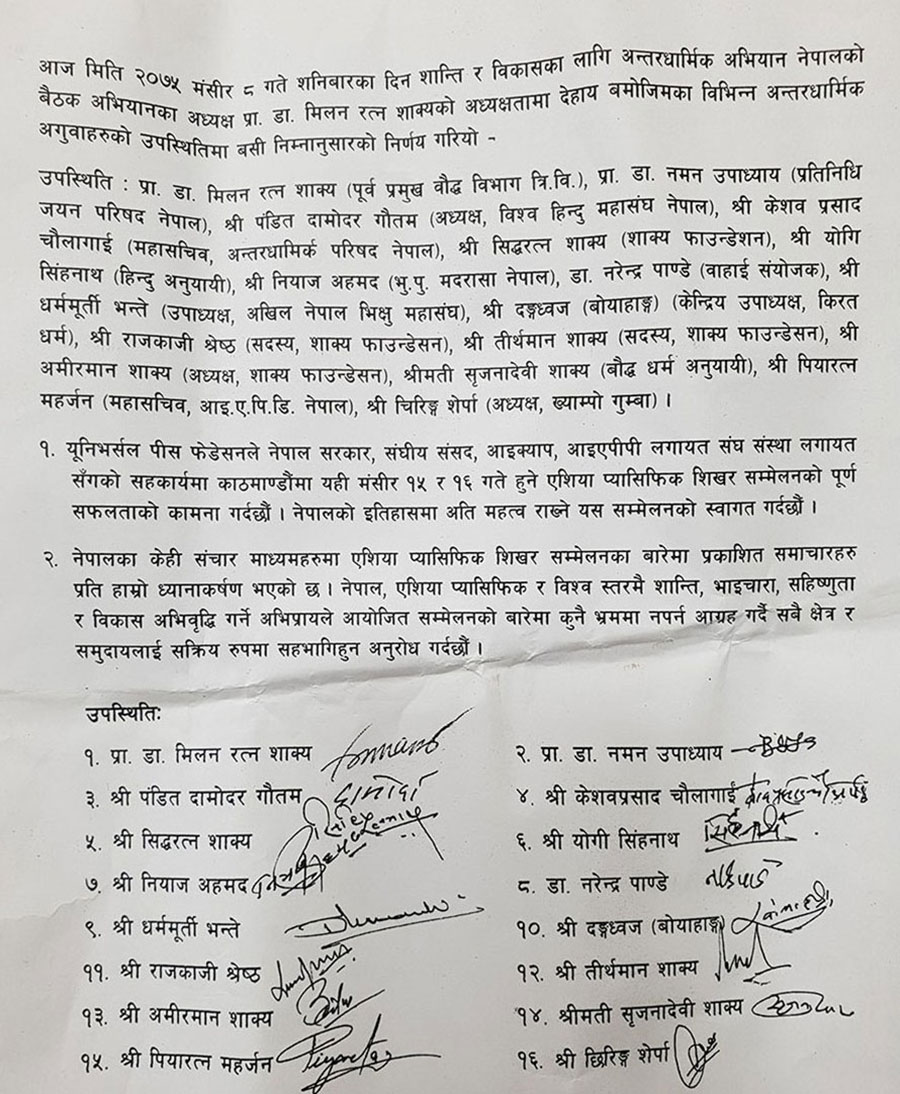 आज मिति २०७५ मंसीर ८ गते शनिबारका दिन शान्ति र विकासका लागि अन्तरधार्मिक अभियान नेपालको
बैठक अभियानका अध्यक्ष प्रा. डा. मिलन रत्न शाक्यको अध्यक्षतामा देहाय बमोजिमका विभिन्न अन्तरधार्मिक
अगुवाहरुको उपस्थितिमा बसी निम्नानुसारको निर्णय गरियो -
उपस्थिति : प्रा. डा. मिलन रत्न शाक्य (पूर्व प्रमुख वौद्ध विभाग त्रि.वि.), प्रा. डा. नमन उपाध्याय (प्रतिनिधि
जयन परिषद नेपाल), श्री पंडित दामोदर गौतम (अध्यक्ष, विश्व हिन्दु महासंघ नेपाल), श्री केशव प्रसाद
चौलागाई (महासचिव, अन्तरधामिर्क परिषद नेपाल), श्री सिद्धरत्न शाक्य (शाक्य फाउन्डेशन), श्री योगि
सिंहनाथ (हिन्दु अनुयायी), श्री नियाज अहमद (भु.पु. मदरासा नेपाल), डा. नरेन्द्र पाण्डे (वाहाई संयोजक), श्री
धर्ममूर्ती भन्ते (उपाध्यक्ष, अखिल नेपाल भिक्षु महासंघ), श्री दङ्गध्वज (बोयाहाङ्ग) (केन्द्रिय उपाध्यक्ष, किरत
धर्म), श्री राजकाजी श्रेष्ठ (सदस्य, शाक्य फाउन्डेसन), श्री तीर्थमान शाक्य (सदस्य, शाक्य फाउन्डेसन), श्री
अमीरमान शाक्य (अध्यक्ष, शाक्य फाउन्डेसन), श्रीमती सृजनादेवी शाक्य (बौद्ध धर्म अनुयायी), श्री पियारत्न
महर्जन (महासचिव, आइ.ए.पि.डि. नेपाल), श्री चिरिङ्ग शेर्पा (अध्यक्ष, ख्याम्पो गुम्बा) ।
१. यूनिभर्सल पीस फेडेसनले नेपाल सरकार, संघीय संसद, आइक्याप, आइएपीपी लगायत संघ संस्था लगायत
सँगको सहकार्यमा काठमाण्डौंमा यही मंसीर १५ र १६ गते हुने एशिया प्यासिफिक शिखर सम्मेलनको पूर्ण
सफलताको कामना गर्दछौं । नेपालको इतिहासमा अति महत्व राख्ने यस सम्मेलनको स्वागत गर्दछौं ।
२. नेपालका केही संचार माध्यमहरुमा एशिया प्यासिफिक शिखर सम्मेलनका बारेमा प्रकाशित समाचारहरु
प्रति हाम्रो ध्यानाकर्षण भएको छ । नेपाल, एशिया प्यासिफिक र विश्व स्तरमै शान्ति, भाइचारा, सहिष्णुता
र विकास अभिवृद्धि गर्ने अभिप्रायले आयोजित सम्मेलनको बारेमा कुनै भ्रममा नपर्न आग्रह गर्दै सबै क्षेत्र र
समुदायलाई सक्रिय रुपमा सहभागिहुन अनुरोध गर्दछौं ।
उपस्थितिः
१. प्रा. डा. मिलन रत्न शाक्य
२. प्रा. डा. नमन उपाध्याय
३. श्री पंडित दामोदर गौतम
४. श्री केशवप्रसाद चौलागाईं
५. श्री सिद्धरत्न शाक्य
६. श्री योगी सिंहनाथ
७. श्री नियाज अहमद
८. डा. नरेन्द्र पाण्डे
९. श्री धर्ममूर्ती भन्ते
१०. श्री दङ्गध्वज (बोयाहाङ्ग)
११. श्री राजकाजी श्रेष्ठ
१२. श्री तीर्थमान शाक्य
१३. श्री अमीरमान शाक्य
१४. श्रीमती सृजनादेवी शाक्य
१५. श्री पियारत्न महर्जन
१६. श्री छिरिङ्ग शेर्पा